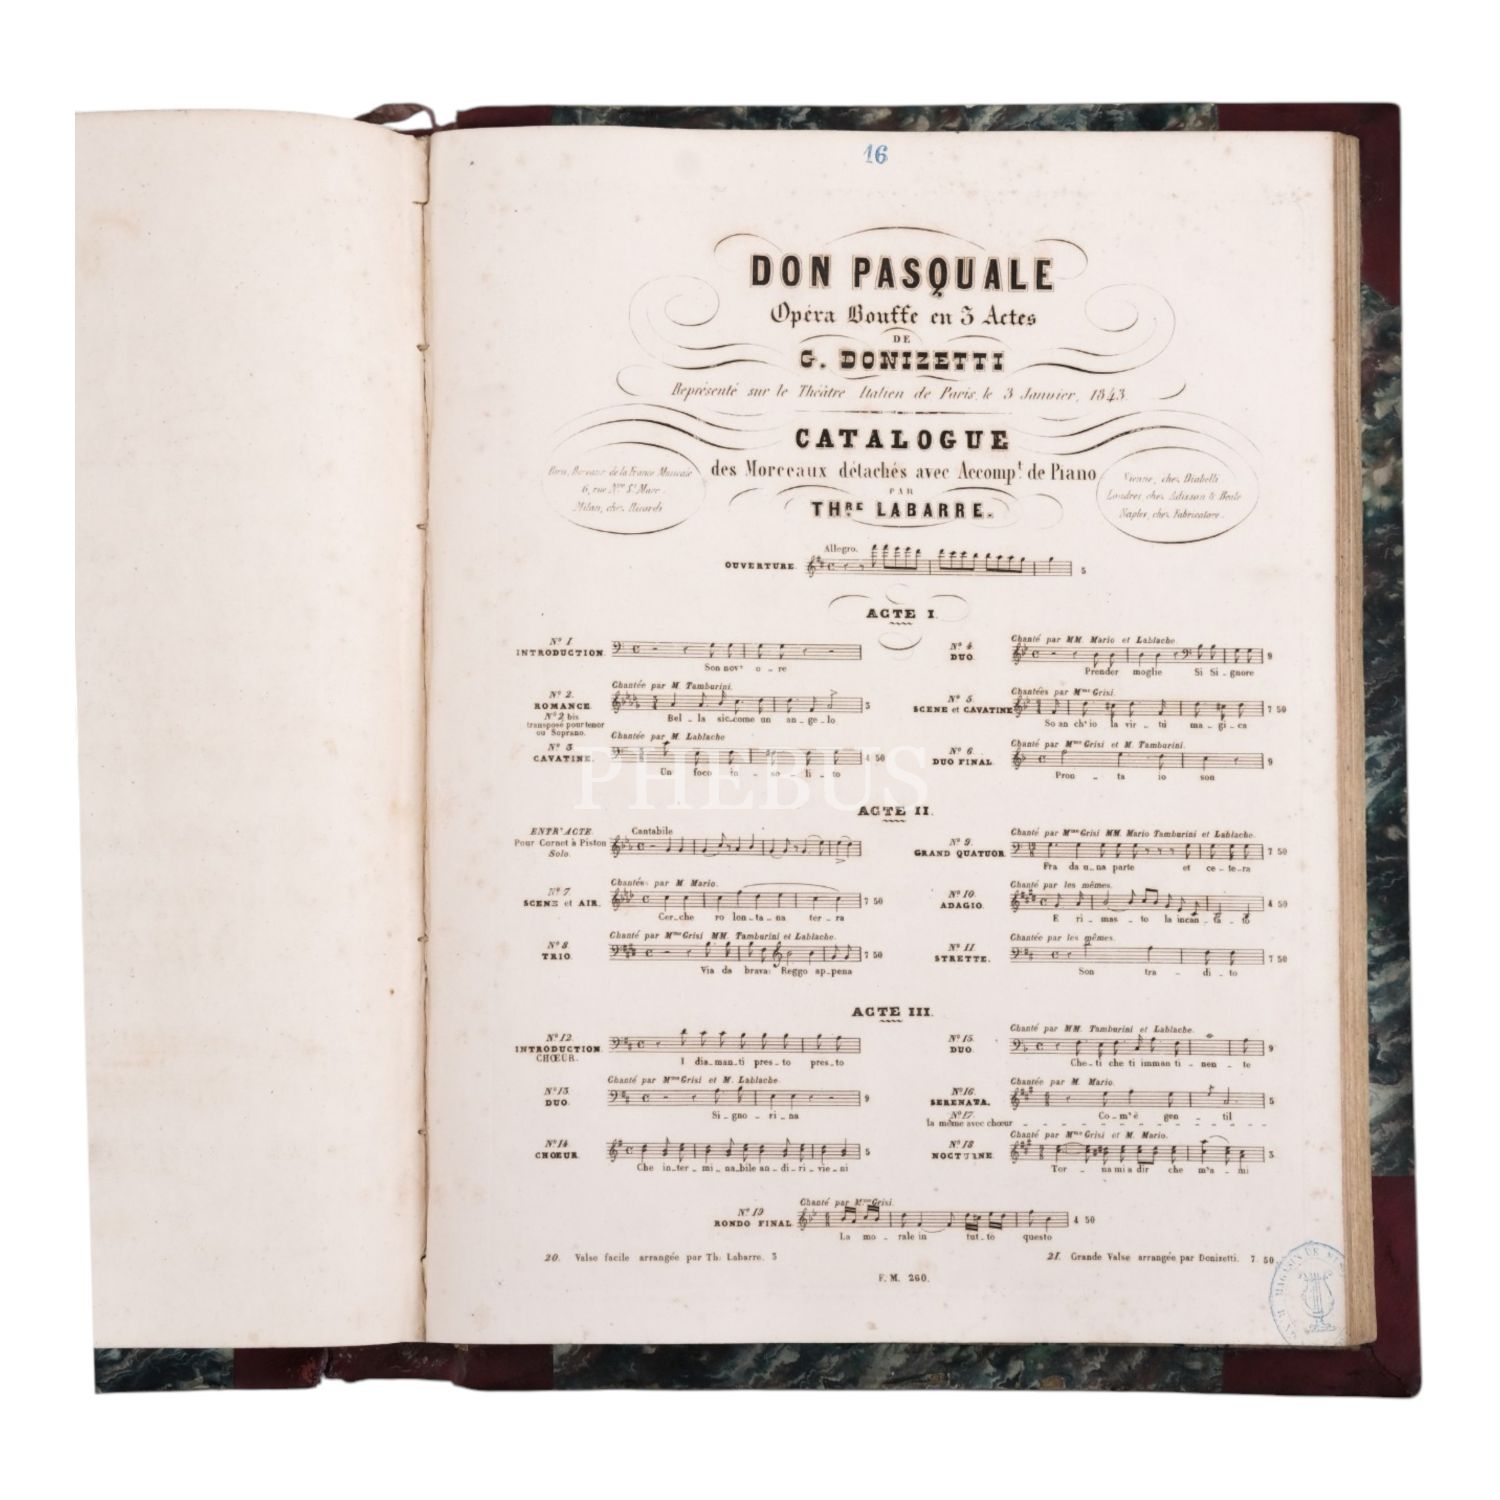 16
DON PASQUALE
Opéra Bouffe en 3 Actes
DE
G. DONIZETTI
Représenté sur le Théâtre Italien de Paris, le 3 Janvier, 1843.
CATALOGUE
des Morceaux détachés avec Accompt. de Piano
PAR
THRE LABARRE.
Paris, Bureaux de la France Musicale
6, rue Nve St Marc.
Milan, chez Ricordi
Vienne, chez Diabelli
Londres, chez Adisson & Beale
Naples, chez Fabricatore.
OUVERTURE. Allegro. 5
ACTE I.
No 1. INTRODUCTION.
Son nov' o _ re
No 2. ROMANCE Chantée par M. Tamburini. 3
No 2 bis
transposé pour tenor
ou Soprano.
Bel _ la sic_come un an_ge_lo
No 3. CAVATINE. Chantée par M. Lablache 4 50
Un foco in _ so _ li _ to
No 4. DUO. Chanté par MM. Mario et Lablache. 9
Prender moglie Si Si_gnore
No 5. SCENE et CAVATINE Chantées par Mme Grisi. 7 50
So an ch'io la vir _ tù ma _ gi _ ca
No 6. DUO FINAL. Chanté par Mme Grisi et M. Tamburini. 9
Pron _ ta io son
PHEBUS
ACTE II.
ENTR'ACTE
Pour Cornet à Piston
Solo.
Cantabile
No 7. SCENE et AIR. Chantés par M Mario. 7 50
Cer_che ro lon_ta_na ter_ra
No 8. TRIO. Chanté par Mme Grisi MM. Tamburini et Lablache. 7 50
Via da brava: Reggo ap_pena
No 9. GRAND QUATUOR Chanté par Mme Grisi MM. Mario Tamburini et Lablache. 7 50
Fra da u_na parte et ce_te_ra
No 10. ADAGIO. Chanté par les mêmes. 4 50
E ri_mas_to la incan_ta_to
No 11. STRETTE. Chantée par les mêmes. 7 50
Son tra _ di _ to
ACTE III.
No 12. INTRODUCTION.
CHŒUR.
I dia_man_ti pres_to pres_to
No 13. DUO. Chanté par Mme Grisi et M. Lablache. 9
Si_gno_ri_na
No 14. CHŒUR. 5
Che in_ter_mi_na_bile an_di_ri_vie_ni
No 15. DUO. Chanté par MM. Tamburini et Lablache. 9
Che_ti che ti imman ti _ nen _ te
No 16. SERENATA. Chantée par M. Mario. 5
Co_m'è gen _ til
No 17.
la même avec chœur
No 18. NOCTURNE. Chanté par Mme Grisi et M. Mario. 3
Tor _ na mi a dir che m'a _ mi
No 19
RONDO FINAL. Chanté par Mme Grisi. 4 50
La mo _ rale in tut_to questo
20. Valse facile arrangée par Th. Labarre. 3
21. Grande Valse arrangée par Donizetti. 7 50
F. M. 260.